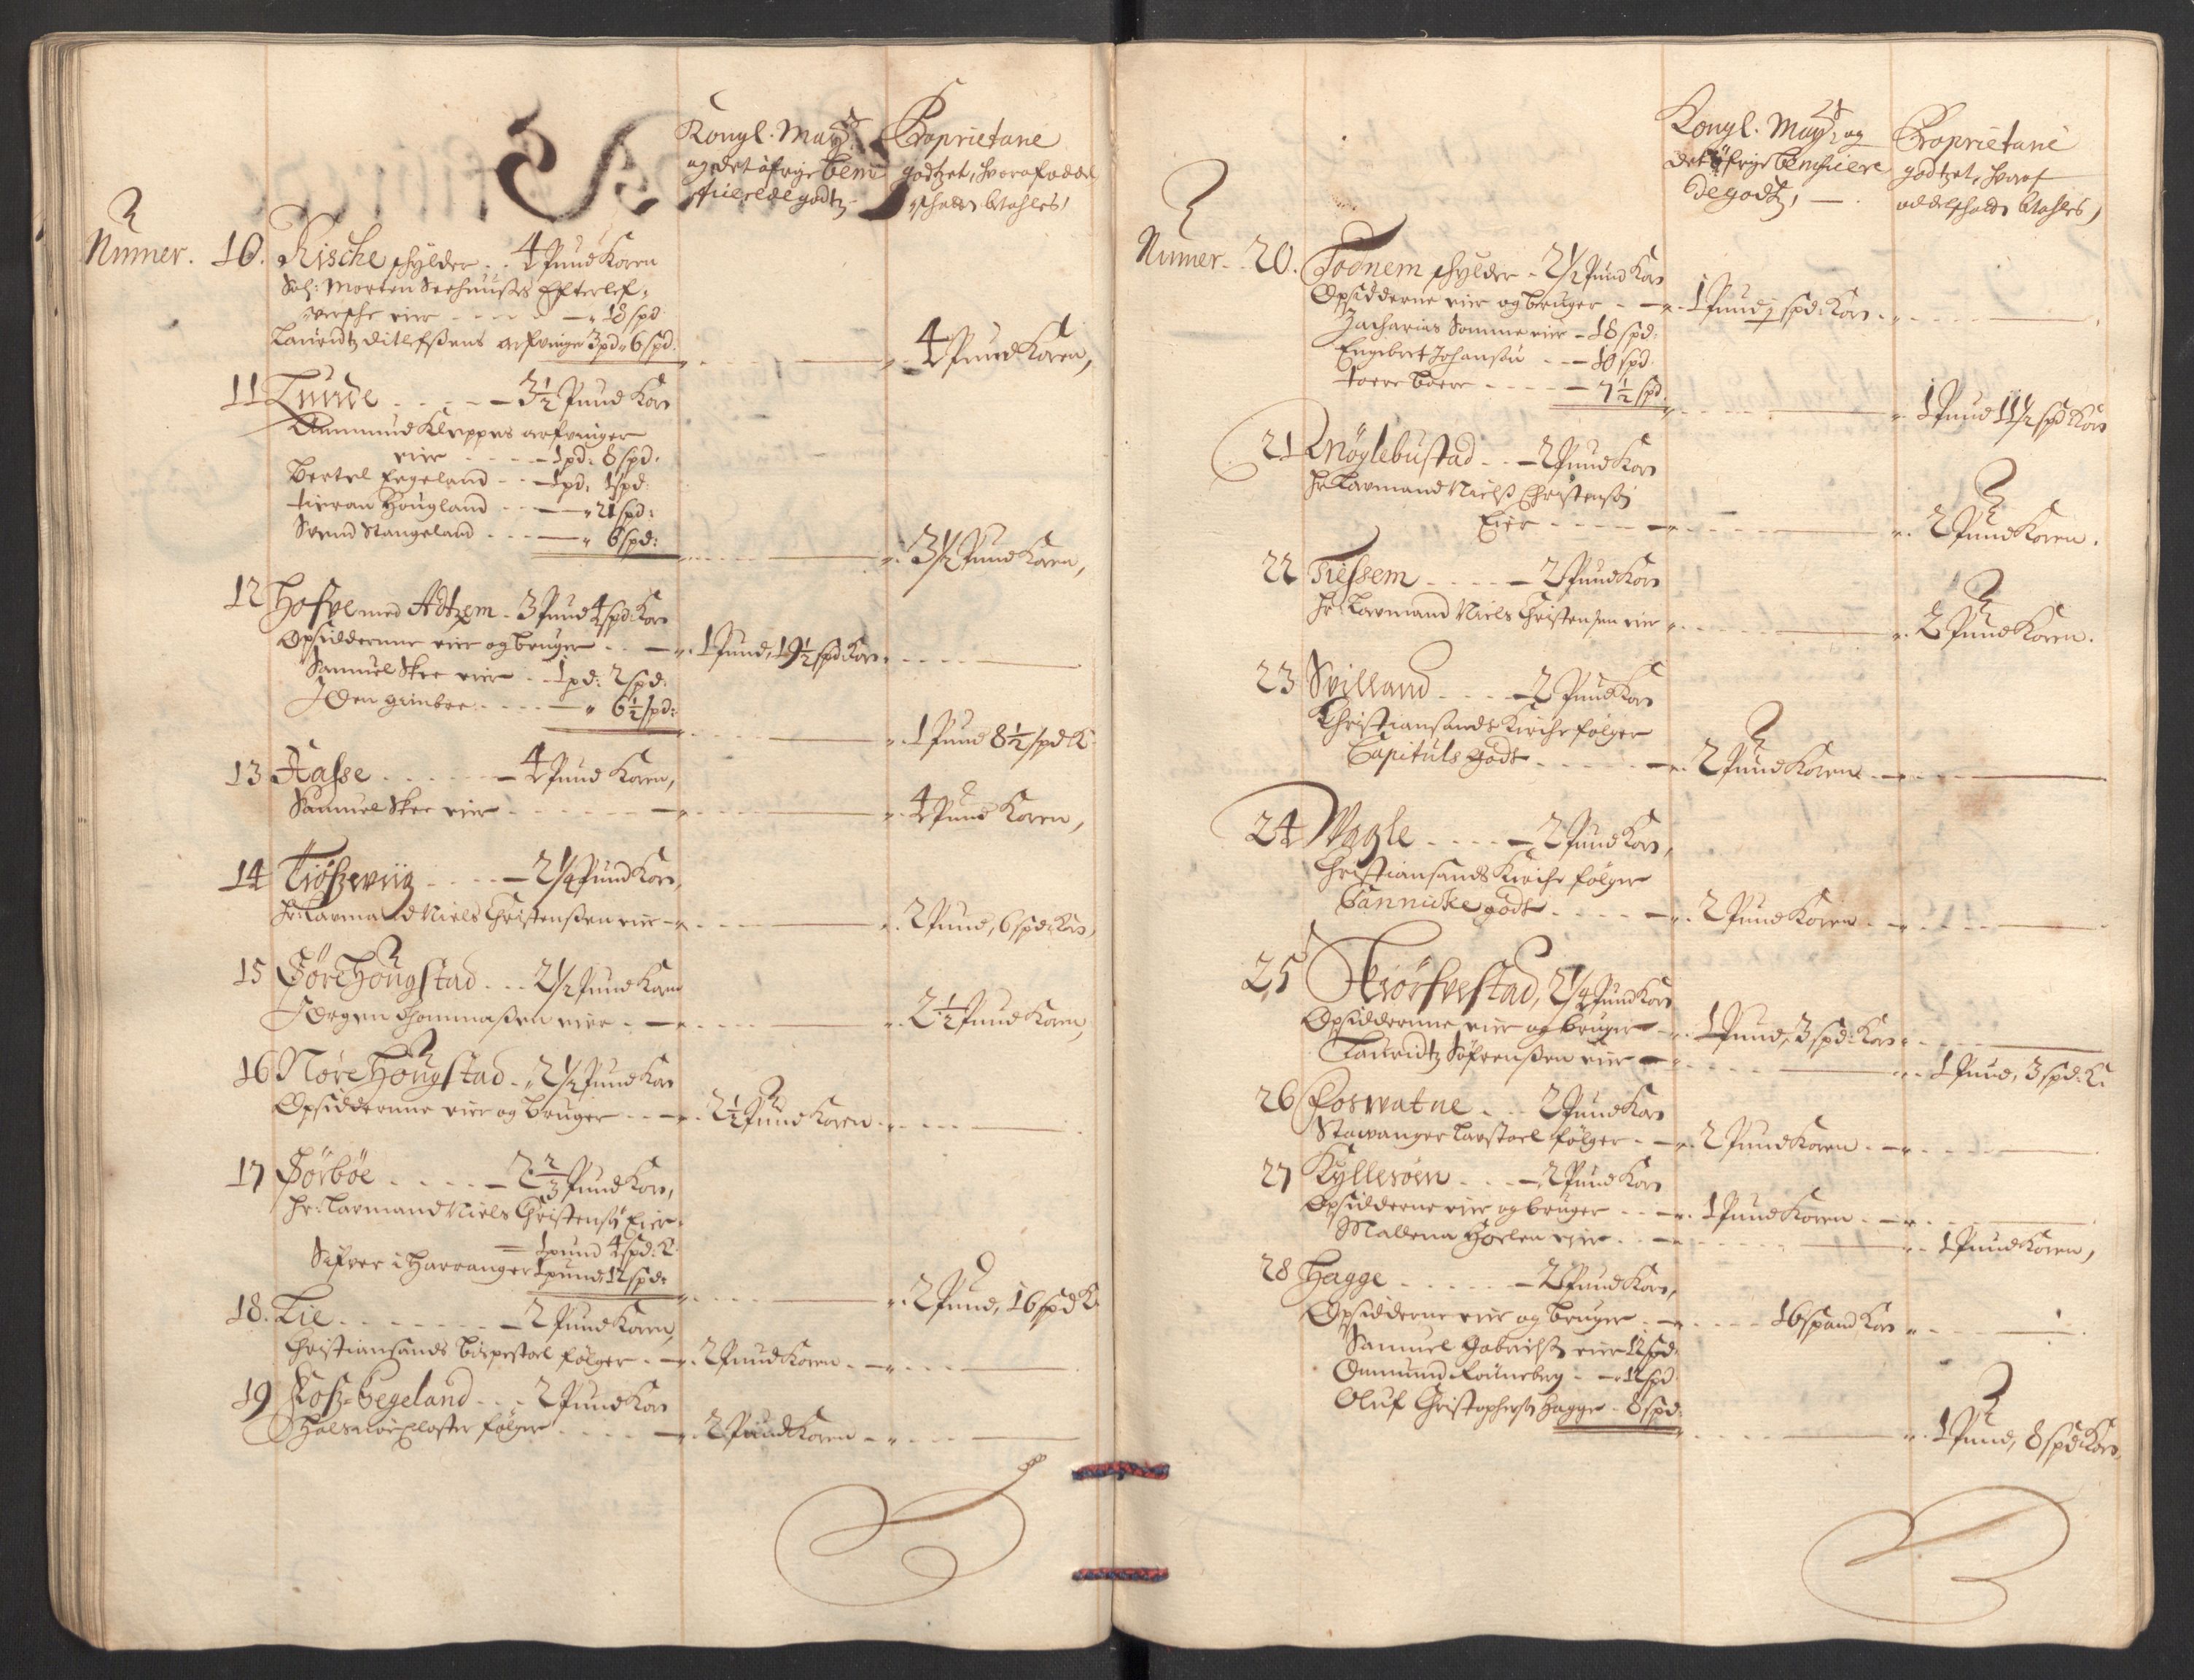 Kongl. Maytz
og det öfrige bene
ficerede godtz
Proprietarie
godtzet, hvoraf oddel
schatt betahles,
Numer. 10. Rische schylder .. 4 Pund Koren
Sal: Morten Seehuußes Efterlef,
versche eier - - - - 18 spd
Lauridtz Ditlefßens arfvinger 3 pd. 6 spd: - - - 4 Pund Koren,
11 Lunde - - - - 3½ Pund Korn
Ammund Kleppes arfvinger
eier - - - - 1 pd: 8 spd.
Bertel Ergeland - - 1 pd, 1 spd.
Hougland - - - 21 spd:
Svend Stangeland - - - 6 spd: - - - 3½ Pund Koren,
12 Hofve med Adtzem - 3 Pund 4 spd: Korn
Opsidderne eier og bruger - - - 1 Pund, 19½ spd Korn
Samuel Skee eier - - 1 pd: 2 spd:
- - - - 6½ spd: - - - 1 Pund 8½ spd K.
13 Aasse - - - - 4 Pund Koren,
Samuel Skee eier - - - - 4 Pund Koren,
14 Tiößewiig - - - - 2¼ Pund Korn,
Hr: Lavmand Niels Christenßen eier - - - 2 Pund, 6 spd: Korn,
15 Söre Hougstad - - - 2½ Pund Korn
Jörgen Thommaßen eier - - - 2½ Pund Koren,
16 Nöre Hougstad - - 2½ Pund Korn
Opsidderne eier og bruger - - - 2½ Pund Koren
17 Sörböe - - - - 2⅔ Pund Korn,
Hr: Lavmand Niels Christensß Eier
- 1 pund 4 spd: K.
Sifver i Harvanger 1 pund: 12 spd: - - - 2 Pund, 16 spd K.
18. Lie - - - - 2 Pund Koren,
Christiansands bispestoel fölger - - - 2 Pund Koren
19 Foß-Eegeland - - - 2 Pund Korn
Halsnöe Closter fölger - - - 2 Pund Koren
Kongl. Maytz og
det öfrige beneficere
de godtz,
Proprietarie
godtzet, hvoraf
oddelschatt betahles,
Numer. 20. Todnem schylder - 2½ Pund Korn
Opsidderne eier og bruger - - - 1 Pund 1 spd: Korn
Zacharias Somme eier - 18 spd:
Engebret Johansön - - 10 spd.
Boere - - - - 7½ spd - - - 1 Pund 11½ spd Korn
21 Möglebustad - - 2 Pund Korn
Hr: Lavmand Nielß Christensß
Eier - - - - 2 Pund Koren.
22 Tiessem - - - - 2 Pund Korn
Hr: Lavmand Niels Christensen eier - - - 2 Pund Koren.
23 Svilland - - - 2 Pund Korn
Christiansands Kirche fölger
Capituls godt - - - - 2 Pund Koren
24 Wagle - - - - 2 Pund Korn,
Christiansands Kirche fölger
Cannicke godt - - - - 2 Pund Koren
25 Skiörfvestad, 2¼ Pund Korn
Opsidderne eier og bruger - - 1 Pund, 3 spd: Korn
Lauridtz Söfrenßen eier - - - 1 Pund, 3 spd: K.
26 Foswatne - - 2 Pund Korn
Stawanger Lavstoel fölger - - 2 Pund Koren
27 Kyllesöen - - - 2 Pund Korn
Opsidderne eier og bruger - - 1 Pund Koren
Mallena Hoelen eier - - - 1 Pund Koren,
28 Hagge - - - - 2 Pund Korn,
Opsidderne eier og bruger - - - 16 spand Korn
Samuel Gabrielß eier 12 spd:
Ommund - - 12 spd
Oluf Christophersß Hagge - 8 spd: - - - 1 Pund, 8 spd Korn,